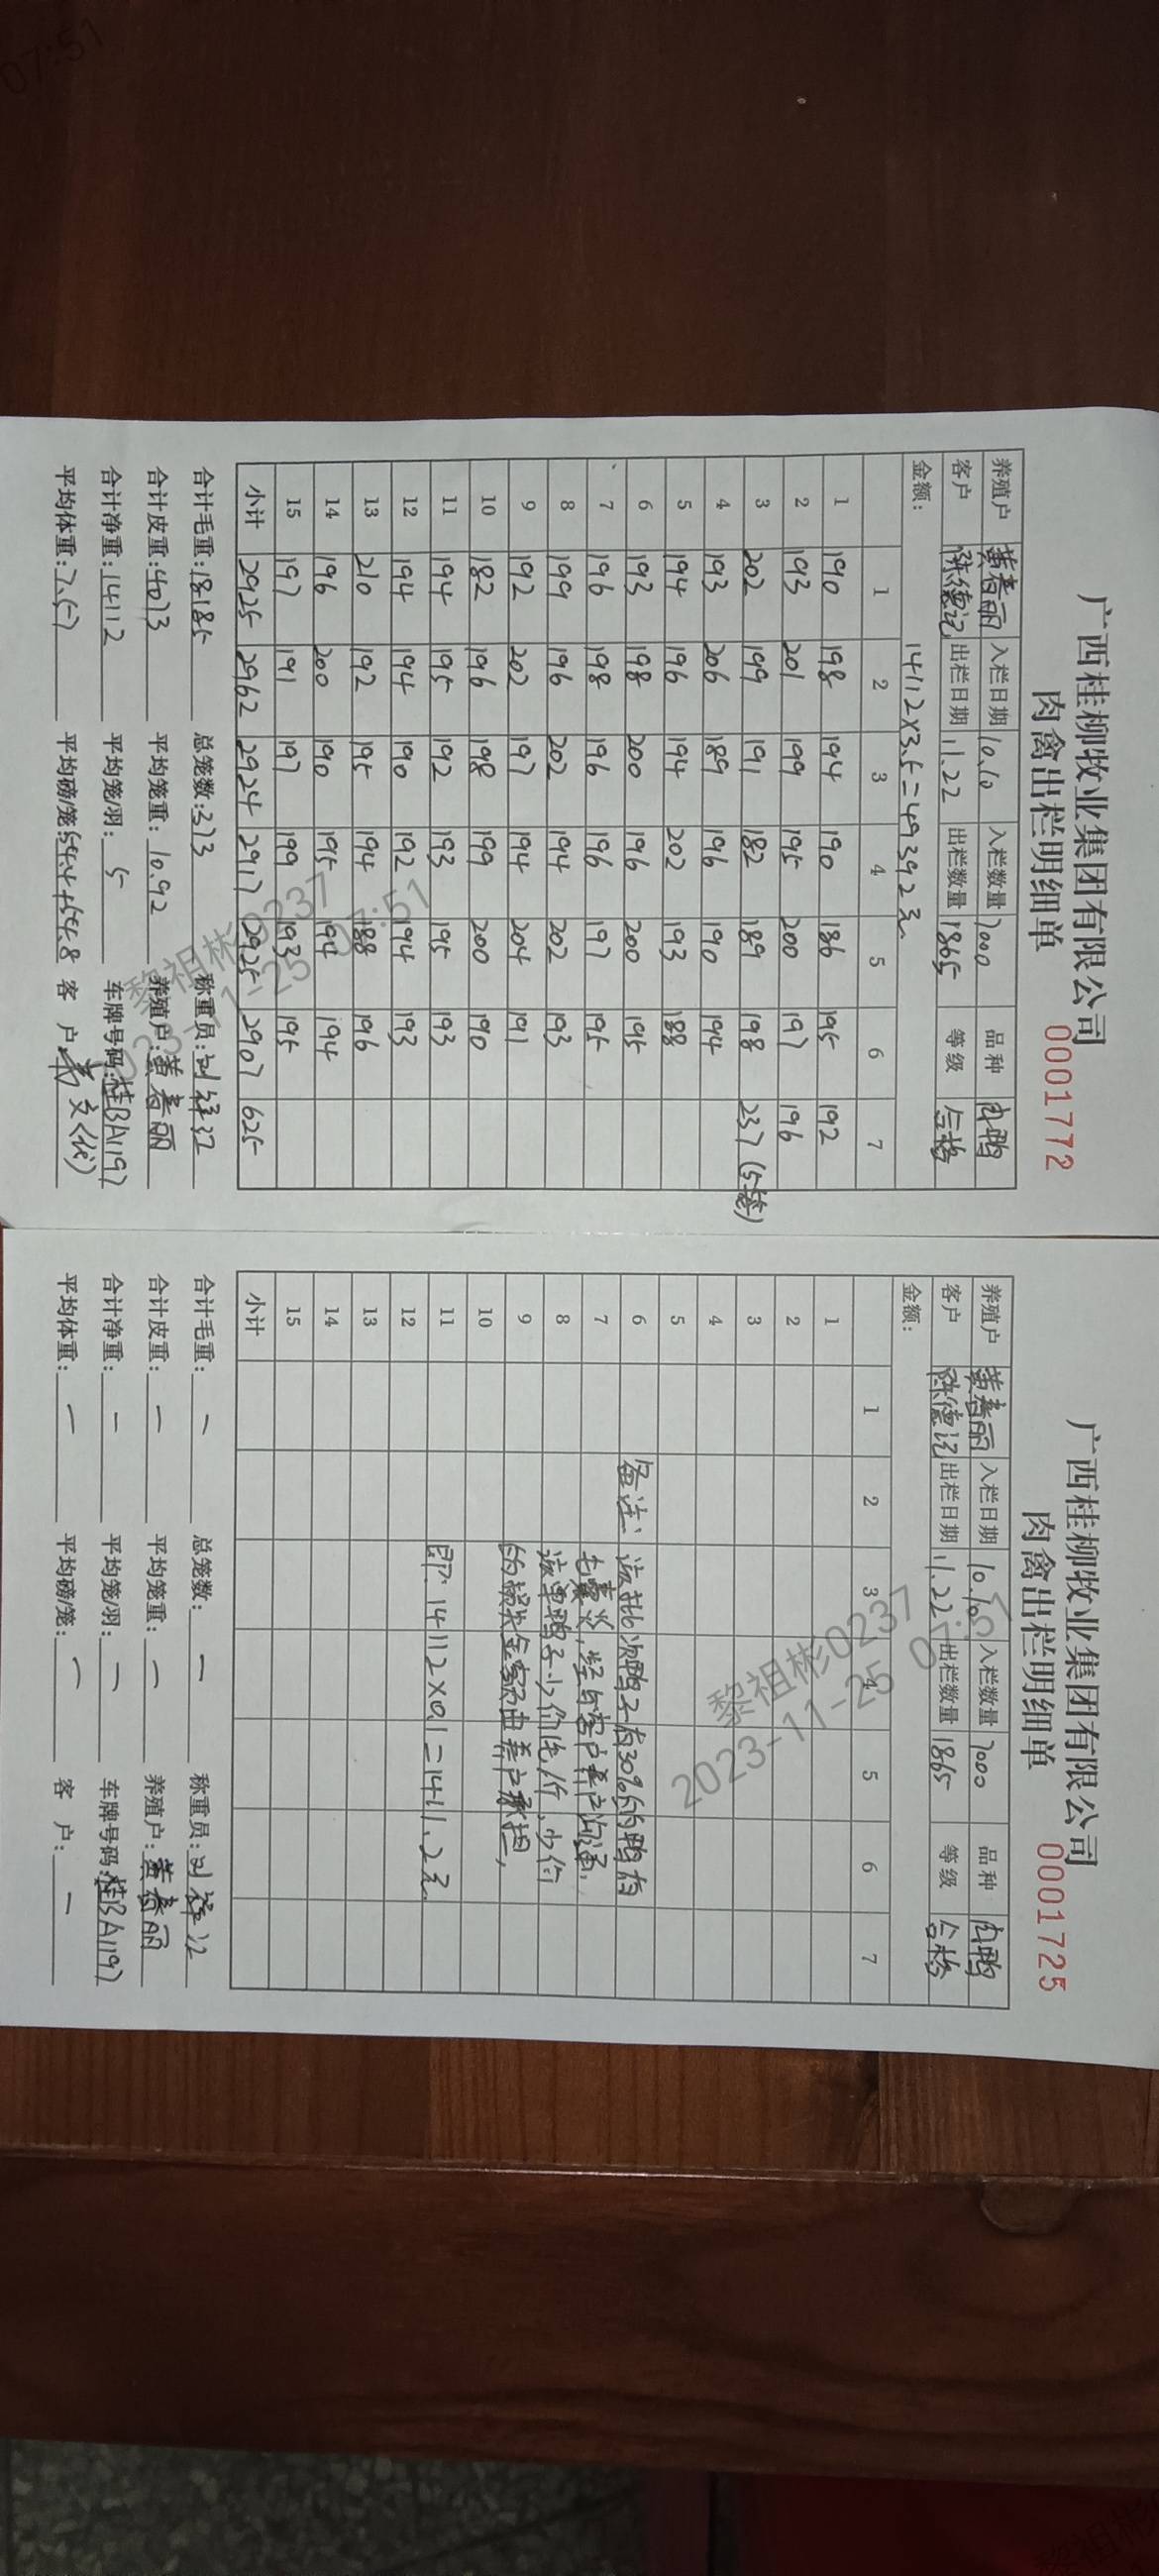 广西桂柳牧业集团有限公司
肉禽出栏明细单
0001772
养殖户 黄春丽 入栏日期 10.10 入栏数量 7000 品种 肉鸭
客户 陈德记 出栏日期 11.22 出栏数量 1865 等级 合格
金额: 14112×3.5=49392元
1 2 3 4 5 6 7
1 190 198 194 190 186 195 192
2 193 201 199 195 200 197 196
3 202 199 191 182 189 198 237(5笼)
4 193 206 189 196 190 194
5 194 196 194 202 193 188
6 193 198 200 196 200 195
7 196 198 196 196 197 195
8 199 196 202 194 202 193
9 192 202 197 194 204 191
10 182 196 198 199 200 190
11 194 195 192 193 195 193
12 194 194 190 192 194 193
13 210 192 195 194 188 196
14 196 200 190 195 194 194
15 197 191 197 199 193 195
小计 2925 2962 2924 2917 2925 2907 625
合计毛重:18185 总笼数:373 称重员:
合计皮重:4073 平均笼重:10.92 养殖户:黄春丽
合计净重:14112 平均笼/羽:5 车牌号码:桂BA1197
平均体重:7.57 平均磅/笼:54.4+54.8 客 户:
黎祖彬0237
2023-11-25 07:51
广西桂柳牧业集团有限公司
肉禽出栏明细单
0001725
养殖户 黄春丽 入栏日期 10.10 入栏数量 7000 品种 肉鸭
客户 陈德记 出栏日期 11.22 出栏数量 1865 等级 合格
金额:
1 2 3 4 5 6 7
1
2
3
4
5
6 备注: 该批次鸭子有30%的鸭有
7 毛囊炎,经与客户养户沟通,
8 该单鸭子少价1毛/斤,少价
9 的损失金额由养户承担,
10
11 即:14112×0.1=1411.2元
12
13
14
15
小计
合计毛重:一 总笼数:一 称重员:
合计皮重:一 平均笼重:一 养殖户:黄春丽
合计净重:一 平均笼/羽:一 车牌号码:桂BA1197
平均体重:一 平均磅/笼:一 客 户:一
黎祖彬0237
2023-11-25 07:51
07:51
黎祖彬